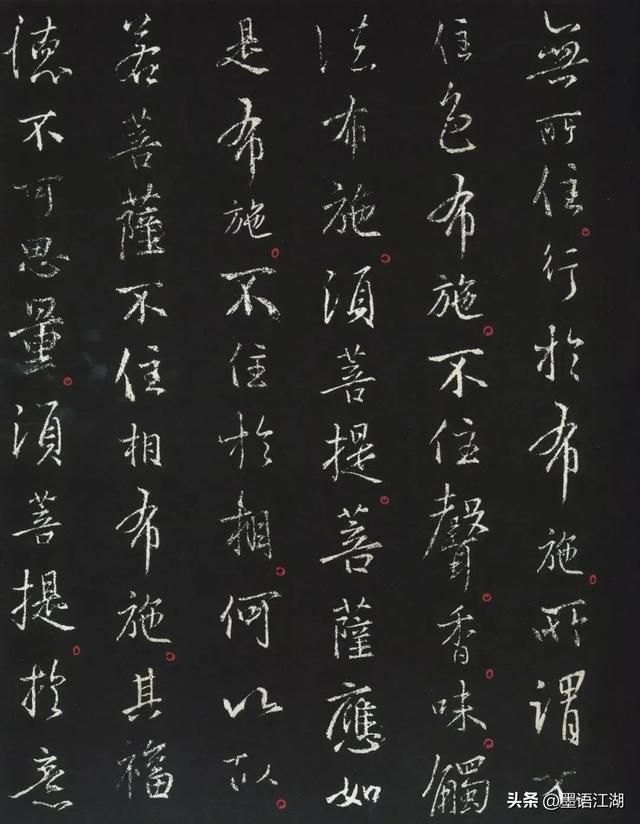 無所住行於布施所謂不
住色布施不住聲香味觸
法布施須菩提菩薩應如
是布施不住於相何以故
若菩薩不住相布施其福
德不可思量須菩提於意
头条 @墨语江湖